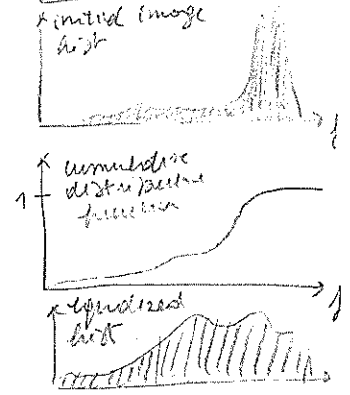 initial image
hist
f
cumulative
distribution
function
1
f
equalized
hist